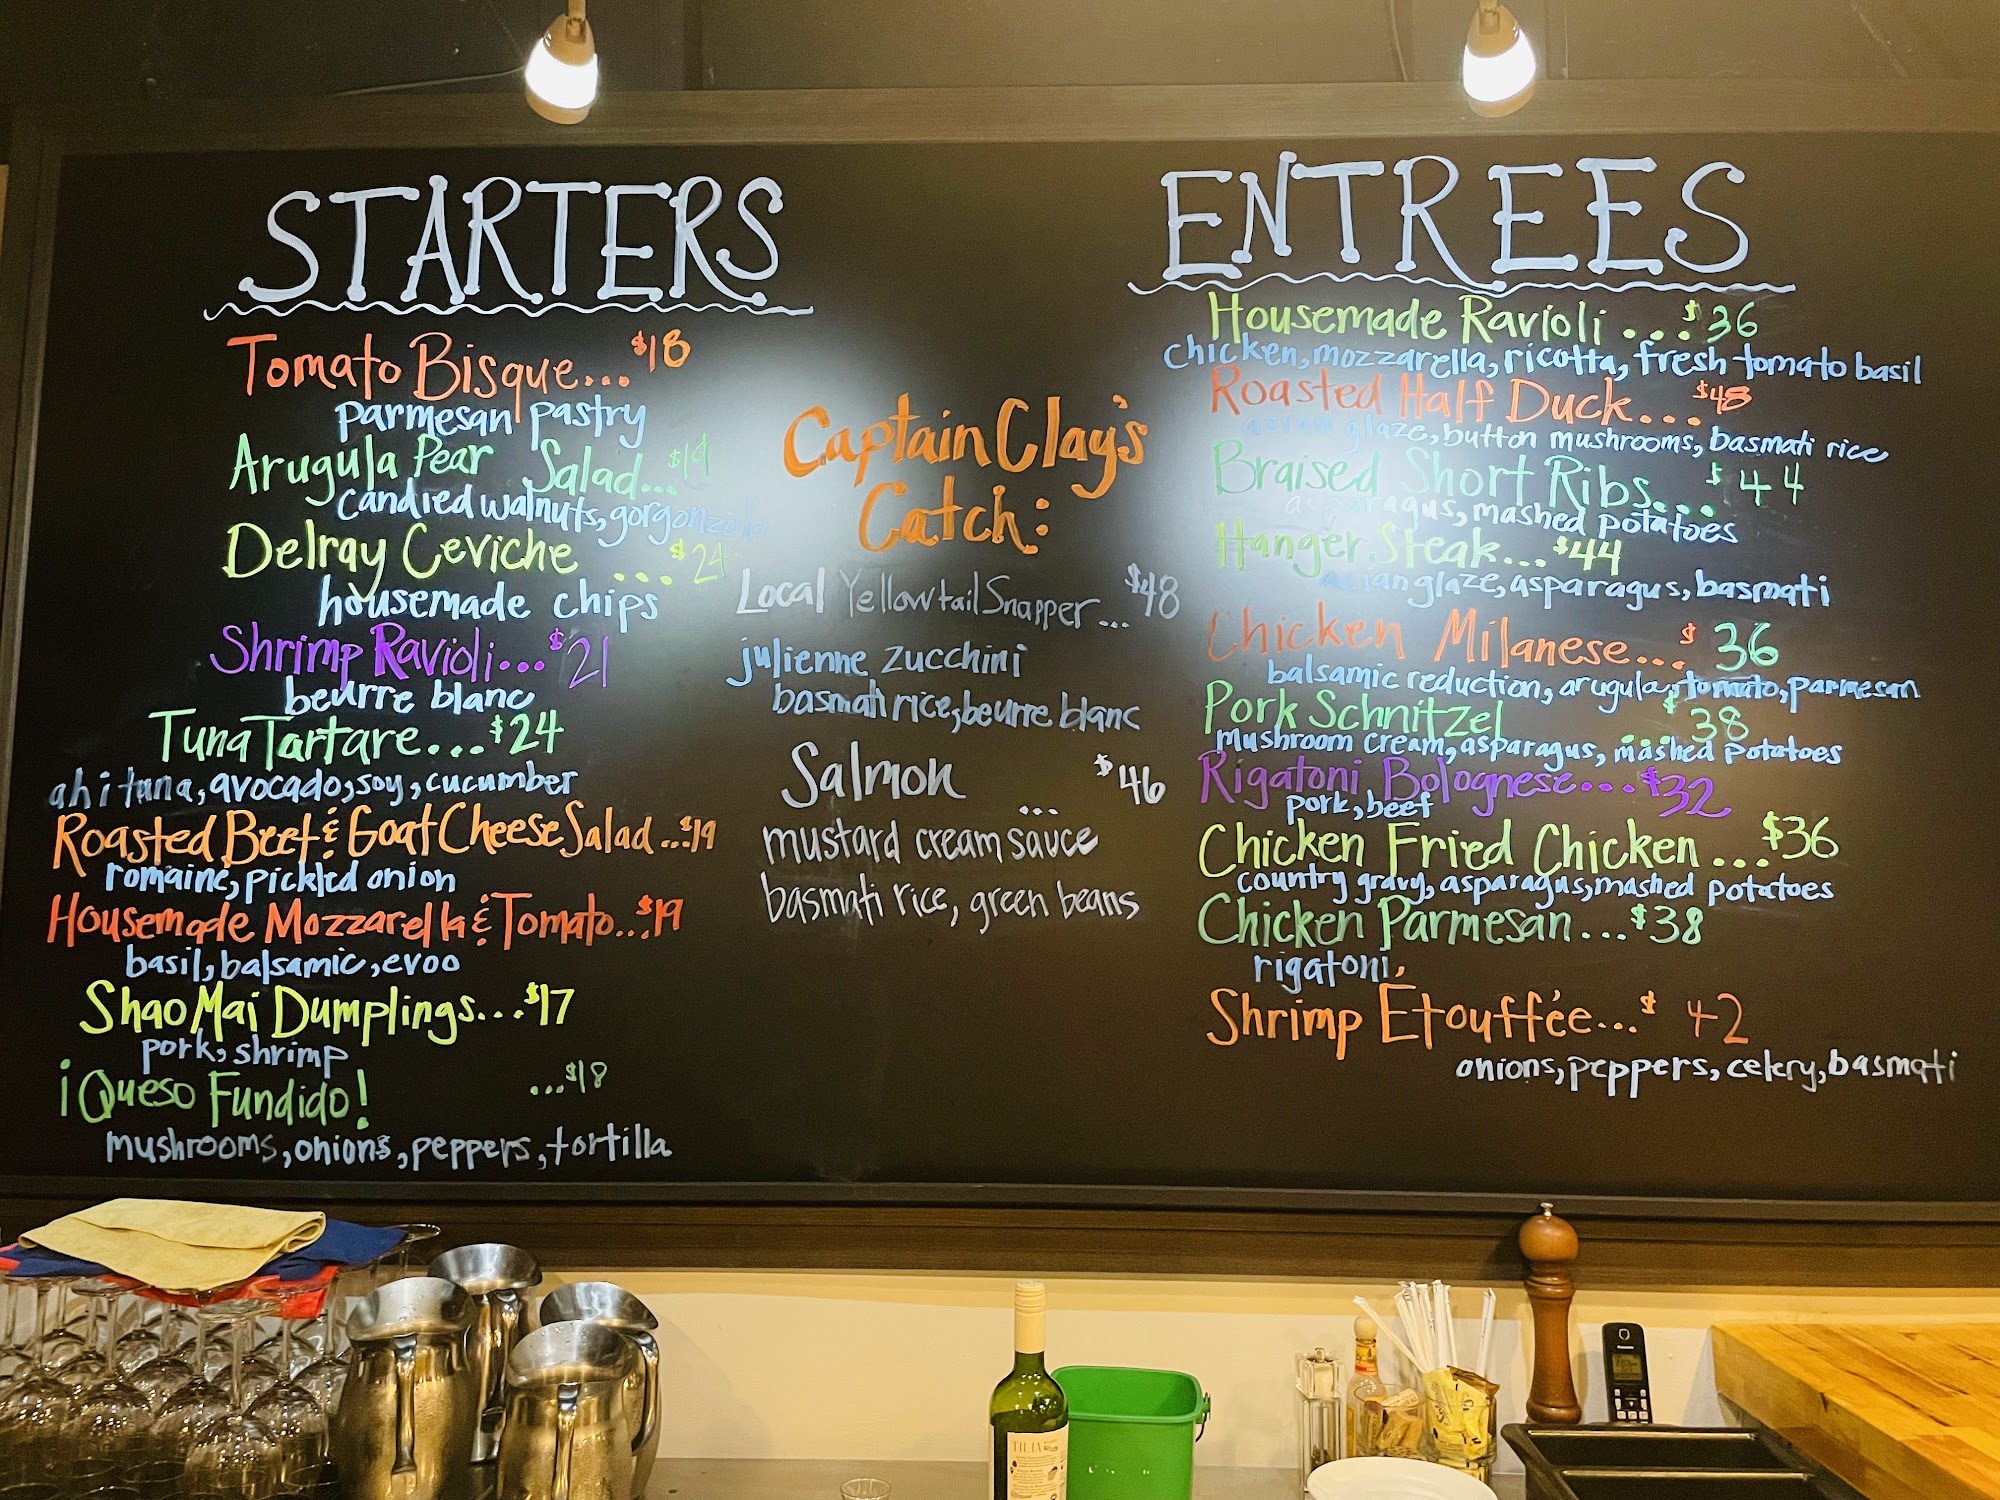 STARTERS
Tomato Bisque...$18
parmesan pastry
Arugula Pear Salad...$19
candied walnuts, gorgonzola
Delray Ceviche ...$24
housemade chips
Shrimp Ravioli...$21
beurre blanc
Tuna Tartare...$24
ahi tuna, avocado, soy, cucumber
Roasted Beet & Goat Cheese Salad...$19
romaine, pickled onion
Housemade Mozzarella & Tomato...$19
basil, balsamic, evoo
Shao Mai Dumplings...$17
pork, shrimp
¡Queso Fundido! ...$18
mushrooms, onions, peppers, tortilla
Captain Clay's
Catch:
Local Yellowtail Snapper...$48
julienne zucchini
basmati rice, beurre blanc
Salmon ... $46
mustard cream sauce
basmati rice, green beans
ENTREES
Housemade Ravioli ...$36
chicken, mozzarella, ricotta, fresh tomato basil
Roasted Half Duck...$48
asian glaze, button mushrooms, basmati rice
Braised Short Ribs...$44
asparagus, mashed potatoes
Hanger Steak...$44
asian glaze, asparagus, basmati
Chicken Milanese...$36
balsamic reduction, arugula, tomato, parmesan
Pork Schnitzel ...$38
mushroom cream, asparagus, mashed potatoes
Rigatoni Bolognese...$32
pork, beef
Chicken Fried Chicken ...$36
country gravy, asparagus, mashed potatoes
Chicken Parmesan...$38
rigatoni,
Shrimp Etouffée...$42
onions, peppers, celery, basmati
TILIA
Panasonic